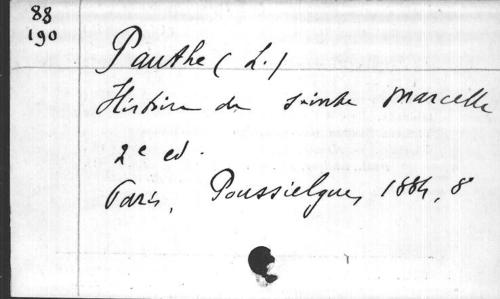 88
190
Pauthe (L.)
Histoire de Sainte Marcelle
2e ed.
Paris, Poussielgue, 1884, 8°